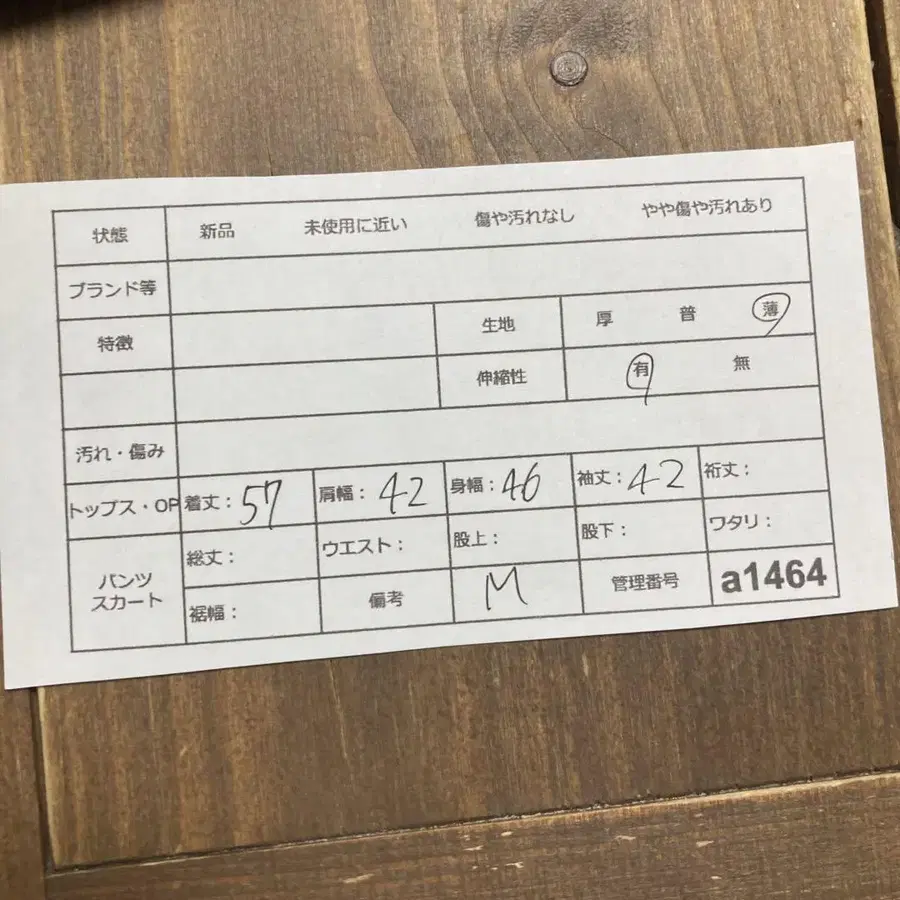 状態 新品 未使用に近い 傷や汚れなし やや傷や汚れあり
ブランド等
特徴 生地 厚 普 薄
伸縮性 有 無
汚れ・傷み
トップス・OP 着丈：57 肩幅：42 身幅：46 袖丈：42 裄丈：
パンツ スカート 総丈： ウエスト： 股上： 股下： ワタリ：
裾幅： 備考 M 管理番号 a1464